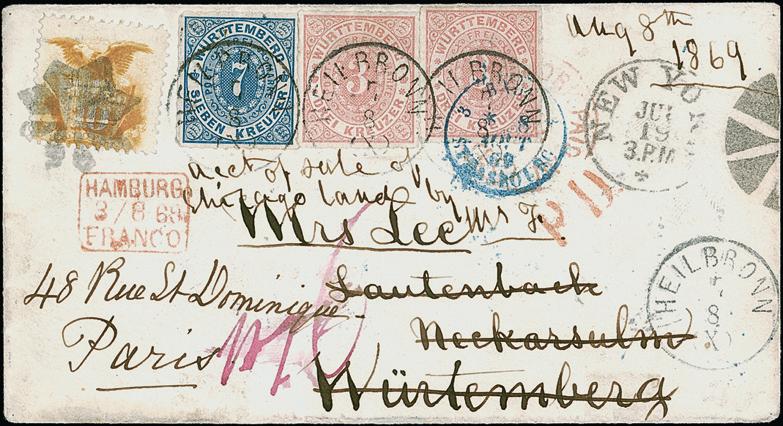 Aug 8th
1869
WÜRTTEMBERG
7
SIEBEN-KREUZER
WÜRTTEMBERG
3
DREI KREUZER
WÜRTTEMBERG
DREI KREUZER
10
HEILBRONN
HEILBRONN
8
STRASBOURG
3
AOUT
69
NEW YORK
JUL
19
3.P.M
HAMBURG
3/8 69
FRANCO
acct of sale of
Chicago land by Mr F.
P D
Mrs Lee
48 Rue St Dominique
Lautenback
Paris
Neckarsulm
Würtemberg
HEILBRONN
8